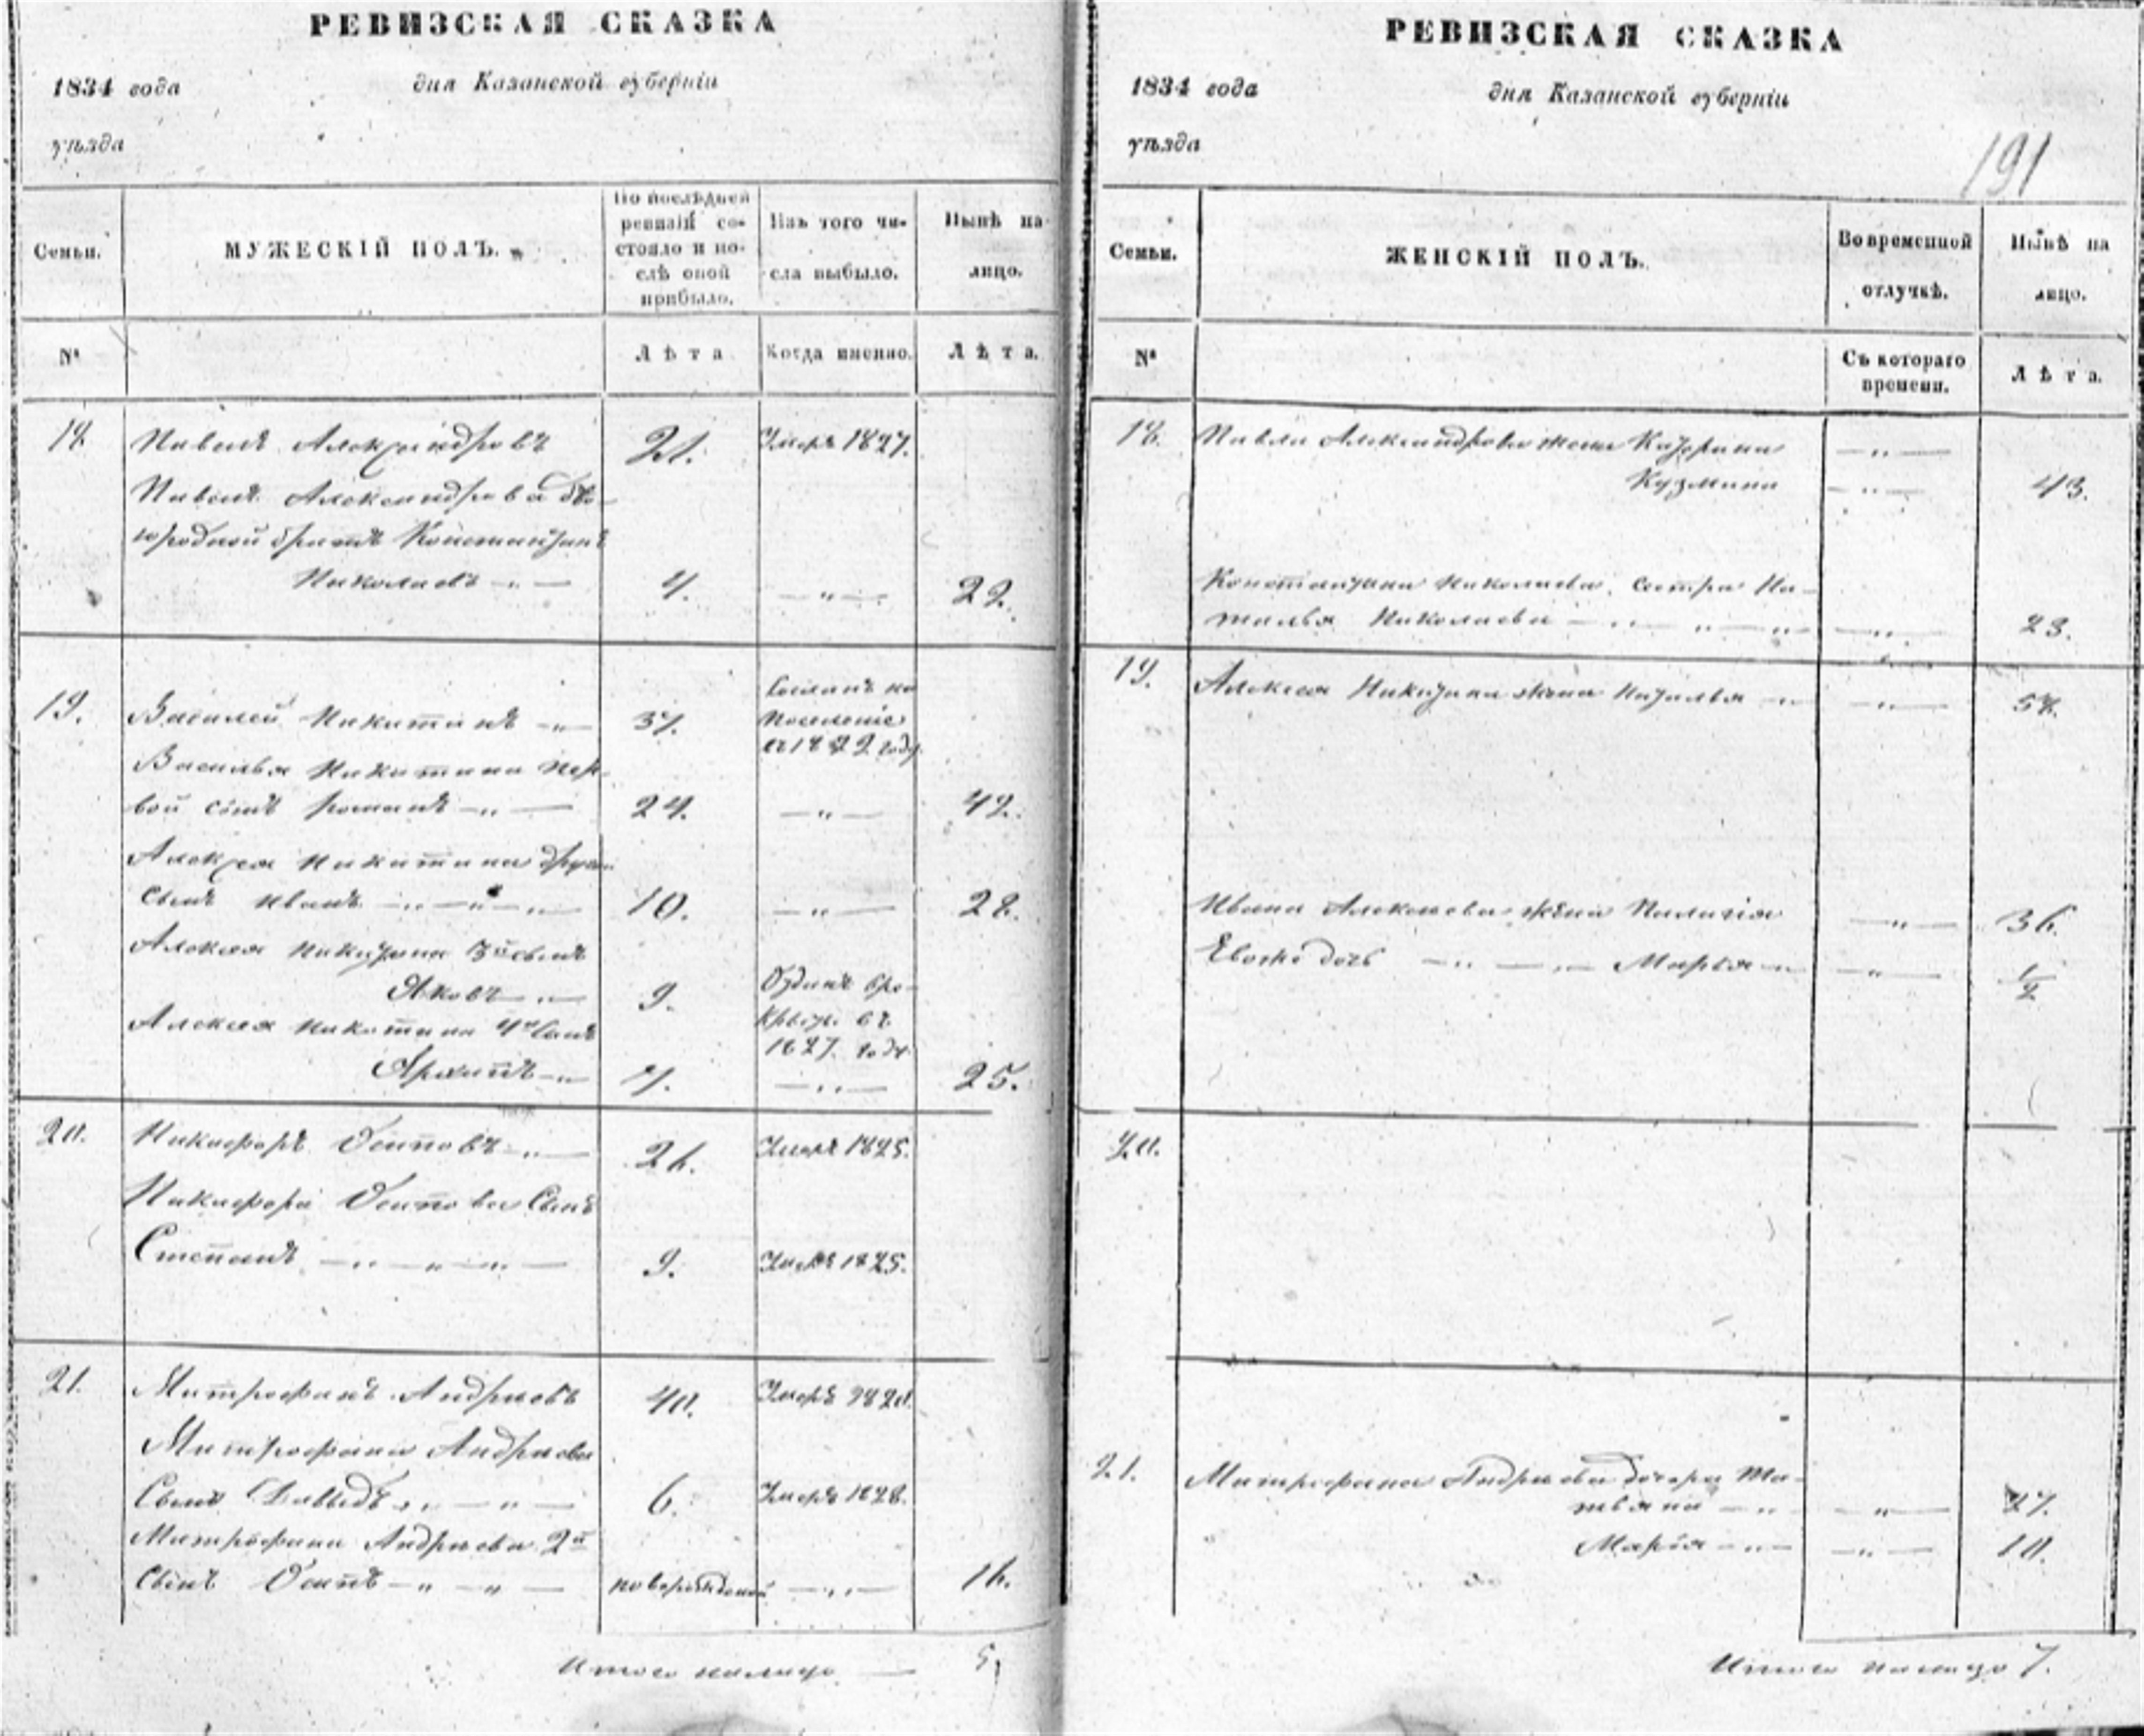 РЕВИЗСКАЯ СКАЗКА
1834 года
дня Казанской губерніи
уѣзда
Семьи.
МУЖЕСКІЙ ПОЛЪ.
По послѣдней
ревизіи со-
стояло и по-
слѣ оной
прибыло.
Изъ того чи-
сла выбыло.
Нынѣ на
лицо.
№
Лѣта
Когда именно.
Лѣта.
Павелъ Александровъ
21.
Умеръ 1827.
Павла Александрова дво-
юродной братъ Константинъ
Николаевъ
4.
22.
19.
Василей Никитинъ
37.
Сосланъ на
Поселеніе
Василья Никитина пер-
вой сынъ романъ
24.
42.
Алексея Никитина другой
сынъ Иванъ
10.
28.
Алексея Никитина 3й сынъ
Яковъ
9.
Отданъ вре-
круты въ
1827. году
Алексея Никитина 4й сынъ
Архипъ
7.
25.
20.
Никифоръ Осиповъ
26.
Умеръ 1825.
Никифора Осипова Сынъ
Степанъ
9.
Умеръ 1825.
21.
Митрофанъ Андреевъ
40.
Умеръ 1820.
Митрофана Андреева
Сынъ Давыдъ
6.
Умеръ 1828.
Митрофана Андреева 2й
сынъ Осипъ
новорожденой
16.
Итого налицо
5
РЕВИЗСКАЯ СКАЗКА
1834 года
дня Казанской губерніи
уѣзда
191
Семьи.
ЖЕНСКІЙ ПОЛЪ.
Во временной
отлучкѣ.
Нынѣ на
лицо.
№
Съ котораго
времени.
Лѣта.
18.
Павла Александрова жена Катерина
Кузмина
43.
Константина Николаева сестра На-
талья Николаева
23.
19.
Алексея Никитина жена Наталья
58.
Ивана Алексеева жена Палагія
36.
Евоже дочь Марья
1/2
20.
21.
Митрофана Андреева дочери Та-
тьяна
27.
Марія
10.
Итого налицо 7.